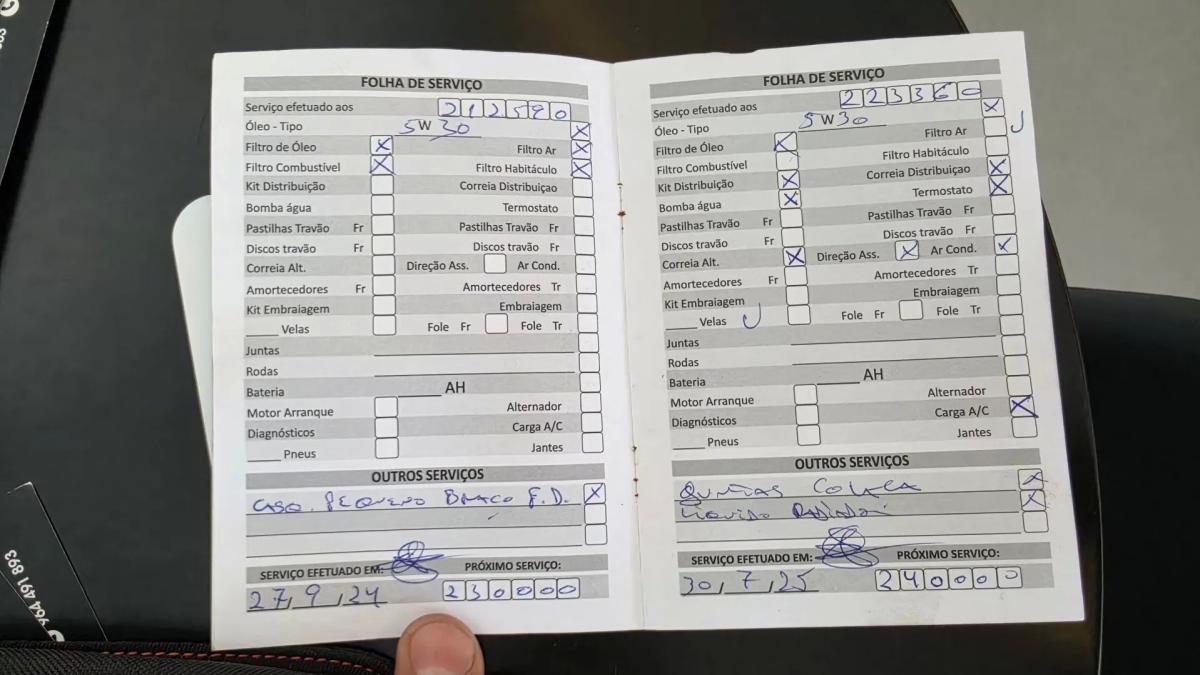 FOLHA DE SERVIÇO
Serviço efetuado aos 212590
Óleo - Tipo 5W 30
Filtro de Óleo Filtro Ar
Filtro Combustível Filtro Habitáculo
Kit Distribuição Correia Distribuiçao
Bomba água Termostato
Pastilhas Travão Fr Pastilhas Travão Fr
Discos travão Fr Discos travão Fr
Correia Alt. Direção Ass. Ar Cond.
Amortecedores Fr Amortecedores Tr
Kit Embraiagem Embraiagem
Velas Fole Fr Fole Tr
Juntas
Rodas
Bateria AH
Motor Arranque Alternador
Diagnósticos Carga A/C
Pneus Jantes
OUTROS SERVIÇOS
PEQUENO F.D.
SERVIÇO EFETUADO EM: PRÓXIMO SERVIÇO:
27,9,24 230000
FOLHA DE SERVIÇO
Serviço efetuado aos 223360
Óleo - Tipo 5W30
Filtro de Óleo Filtro Ar
Filtro Combustível Filtro Habitáculo
Kit Distribuição Correia Distribuiçao
Bomba água Termostato
Pastilhas Travão Fr Pastilhas Travão Fr
Discos travão Fr Discos travão Fr
Correia Alt. Direção Ass. Ar Cond.
Amortecedores Fr Amortecedores Tr
Kit Embraiagem Embraiagem
Velas Fole Fr Fole Tr
Juntas
Rodas
Bateria AH
Motor Arranque Alternador
Diagnósticos Carga A/C
Pneus Jantes
OUTROS SERVIÇOS
LIQUIDO
SERVIÇO EFETUADO EM: PRÓXIMO SERVIÇO:
30,7,25 240000
964 491 893